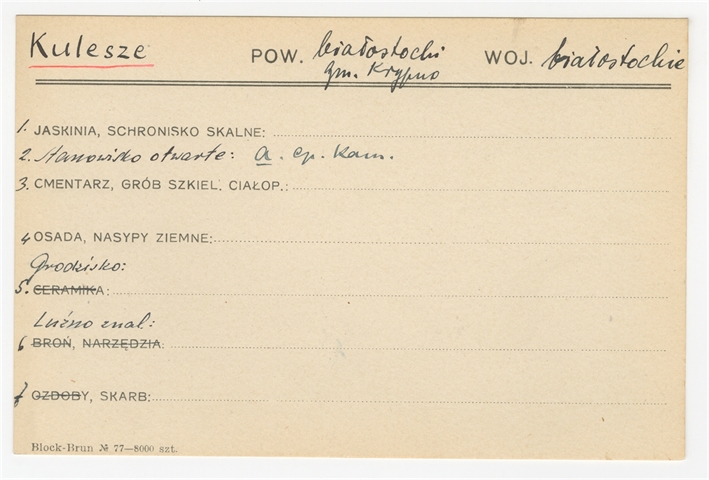 Kulesze POW. białostocki WOJ. białostockie
gm. Krypno
1. JASKINIA, SCHRONISKO SKALNE:
2. Stanowisko otwarte: a. ep. kam.
3. CMENTARZ, GRÓB SZKIEL. CIAŁOP.:
4 OSADA, NASYPY ZIEMNE:
Grodzisko:
5. CERAMIKA:
Luźno znal.:
6 BROŃ, NARZĘDZIA:
7 OZDOBY, SKARB:
Block-Brun № 77—8000 szt.